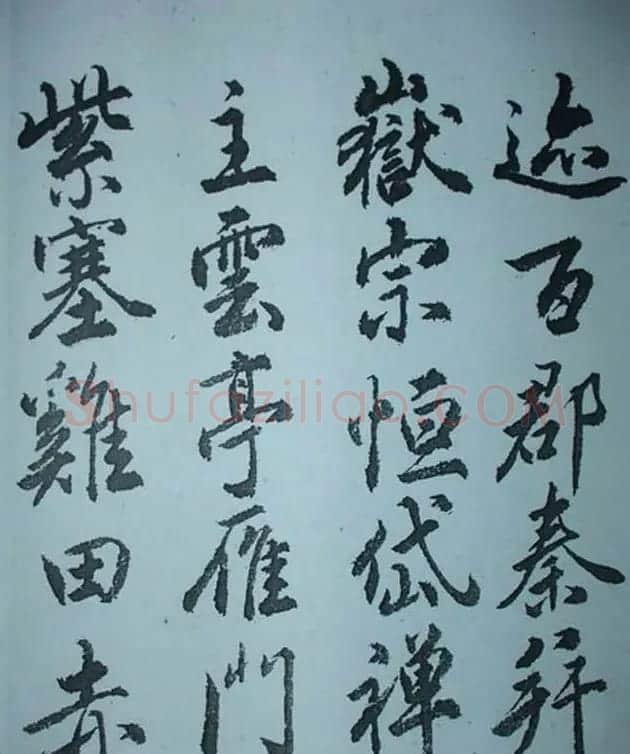 迹百郡秦并
嶽宗恒岱禅
主雲亭雁門
紫塞雞田赤
Shufaziliao.COM